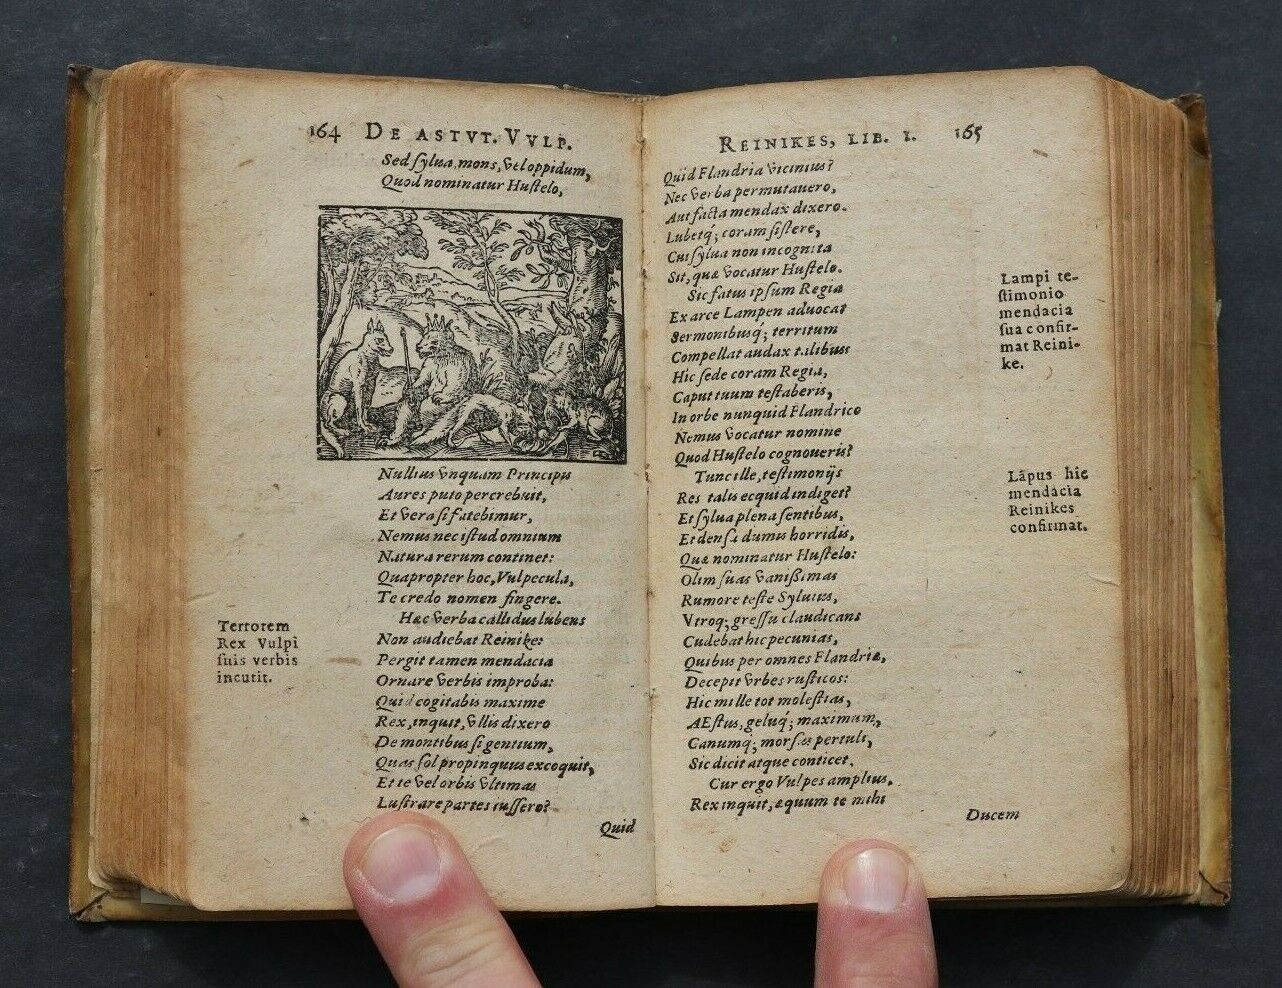 164 DE ASTVT. VVLP.
Sed sylua, mons, vel oppidum,
Quod nominatur Hustelo,
Nullius vnquam Principis
Aures puto percrebuit,
Et vera si fatebimur,
Nemus nec istud omnium
Natura rerum continet:
Quapropter hoc, Vulpecula,
Te credo nomen fingere.
Hæc verba callidus lubens
Non audiebat Reinike:
Pergit tamen mendacia
Ornare verbis improba:
Quid cogitabis maxime
Rex, inquit, vllis dixero
De montibus si gentium,
Quas sol propinquus excoquit,
Et te vel orbis vltimas
Lustrare partes iussero?
Quid
Terrorem
Rex Vulpi
suis verbis
incutit.
REINIKES, LIB. I. 165
Quid Flandria vicinius?
Nec verba permutauero,
Aut facta mendax dixero.
Lubetq́; coram sistere,
Cui sylua non incognita
Sit, quæ vocatur Hustelo.
Sic fatus ipsum Regia
Ex arce Lampen aduocat
Sermonibusq́; territum
Compellat audax talibus:
Hic sede coram Regia,
Caput tuum testaberis,
In orbe nunquid Flandrico
Nemus vocatur nomine
Quod Hustelo cognoueris?
Tunc ille, testimonijs
Res talis ecquid indiget?
Et sylua plena sentibus,
Et densa dumis horridis,
Quæ nominatur Hustelo:
Olim suas vanißimas
Rumore teste Syluius,
Vtroq; gressu claudicans
Cudebat hic pecunias,
Quibus per omnes Flandriæ,
Decepit vrbes rusticos:
Hic mille tot molestias,
AEstus, geluq́; maximum,
Canumq́; morsus pertuli,
Sic dicit atque conticet.
Cur ergo Vulpes amplius.
Rex inquit, æquum te mihi
Ducem
Lampi te-
stimonio
mendacia
sua confir-
mat Reini-
ke.
Lāpus hic
mendacia
Reinikes
confirmat.